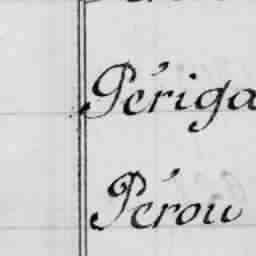 Périga
Pérou